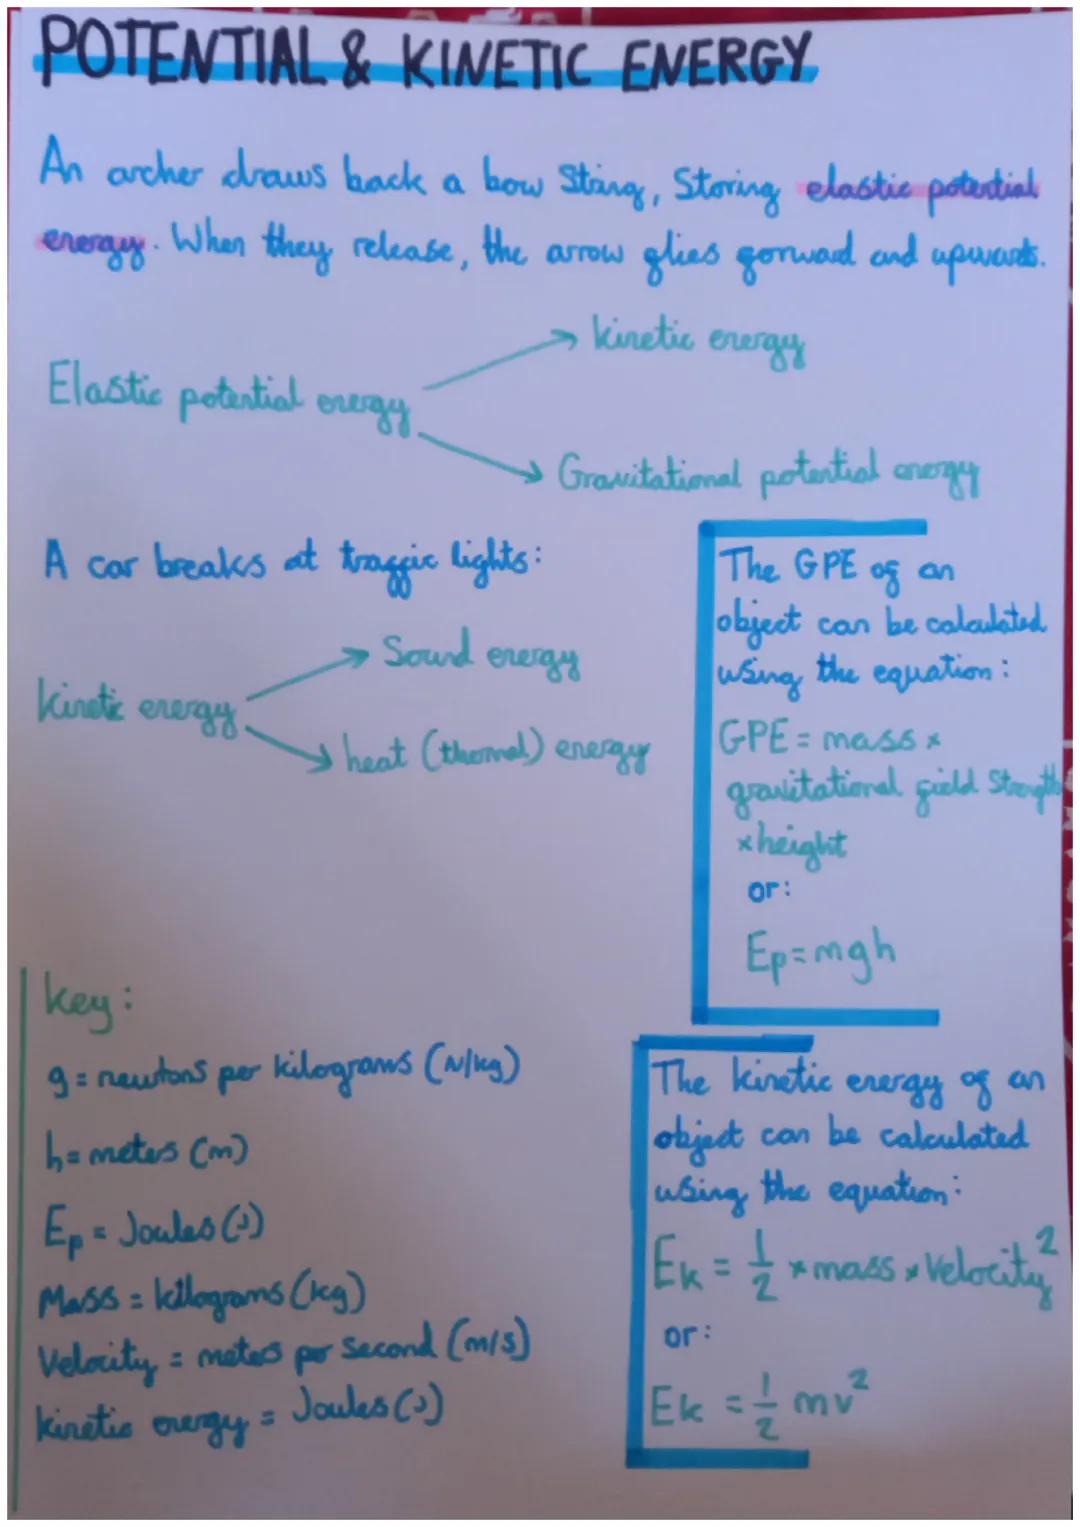 POTENTIAL & KINETIC ENERGY
An archer draws back a bow String, Storing elastic potential
energy. When they release, the arrow flies forward and upwards.
kinetic energy
Elastic potential energy
Gravitational potential energy
A car breaks at traffic lights:
Sound energy
kinetic energy
heat (thermal) energy
The GPE of an
object can be calculated
using the equation:
GPE = mass ×
gravitational field Strength
× height
or:
Ep = mgh
key:
g = newtons per kilograms (N/kg)
h = meters (m)
Ep = Joules (J)
Mass = kilograms (kg)
Velocity = meters per Second (m/s)
kinetic energy = Joules (J)
The kinetic energy of an
object can be calculated
using the equation:
Ek = 1/2 × mass × Velocity²
or:
Ek = 1/2 mv²